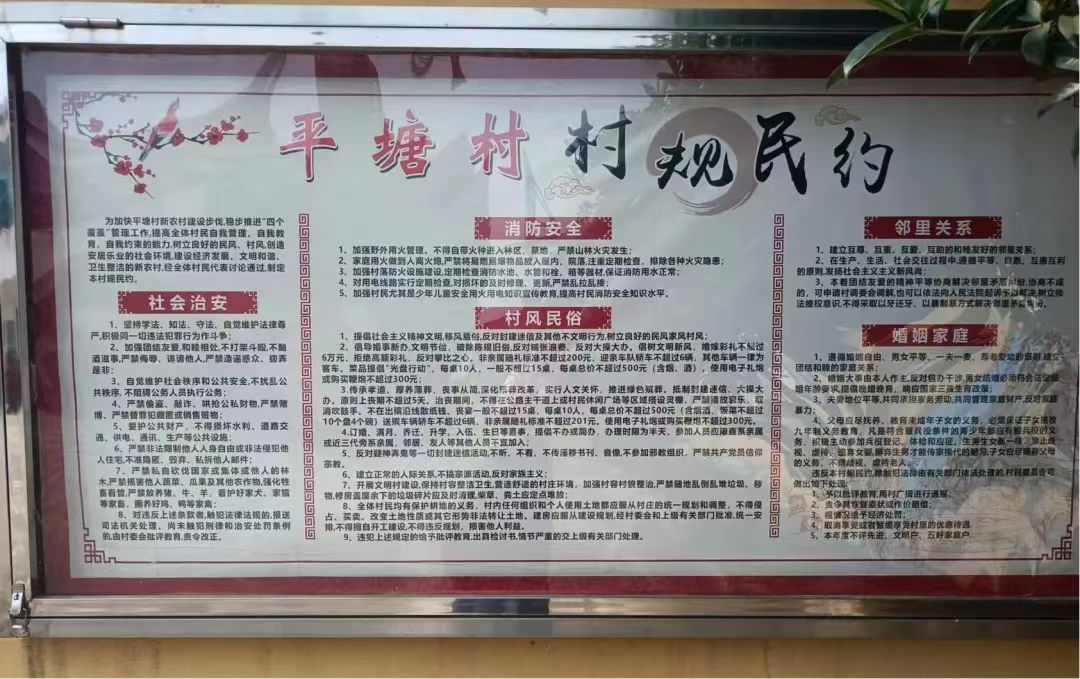 平塘村村规民约
为加快平塘村新农村建设步伐,稳步推进"四个
覆盖"管理工作,提高全体村民自我管理、自我教
育、自我约束的能力,树立良好的民风、村风,创造
安居乐业的社会环境,建设经济发展、文明和谐、
卫生整洁的新农村,经全体村民代表讨论通过,制定
本村规民约。
社会治安
1、坚持学法、知法、守法、自觉维护法律尊
严,积极同一切违法犯罪行为作斗争;
2、加强团结友爱,和睦相处,不打架斗殴,不酗
酒滋事,严禁侮辱、诽谤他人,严禁造谣惑众、拨弄
是非;
3、自觉维护社会秩序和公共安全,不扰乱公
共秩序,不阻碍公务人员执行公务;
4、严禁偷盗、敲诈、哄抢公私财物,严禁赌
博、严禁替罪犯藏匿或销售脏物;
5、爱护公共财产,不得损坏水利、道路交
通、供电、通讯、生产等公共设施;
6、严禁非法限制他人人身自由或非法侵犯他
人住宅,不准隐匿、毁弃、私拆他人邮件;
7、严禁私自砍伐国家或集体或他人的林
木,严禁损害他人蔬菜、瓜果及其他农作物,强化牲
畜看管,严禁放养猪、牛、羊,看护好家犬、家猫
等家畜,圈养好鸡、鸭等家禽;
8、对违反上述条款者,触犯法律法规的,报送
司法机关处理、尚未触犯刑律和治安处罚条例
的,由村委会批评教育,责令改正。
消防安全
1、加强野外用火管理。不得自带火种进入林区、草地、严禁山林火灾发生;
2、家庭用火做到人离火熄,严禁将易燃易爆物品放入屋内、院落,注重定期检查,排除各种火灾隐患;
3、加强村落防火设施建设,定期检查消防水池、水管和栓、箱等器材,保证消防用水正常;
4、对用电线路实行定期检查,对损坏的及时修理、更新,严禁乱拉乱接;
5、加强村民尤其是少年儿童安全用火用电知识宣传教育,提高村民消防安全知识水平。
村风民俗
1、提倡社会主义精神文明,移风易俗,反对封建迷信及其他不文明行为,树立良好的民风家风村风;
2、倡导婚事新办,文明节俭,破除陈规旧俗,反对铺张浪费、反对大操大办,倡树文明新风,婚嫁彩礼不超过
6万元,拒绝高额彩礼,反对攀比之心。非亲属随礼标准不超过200元,迎亲车队轿车不超过6辆,其他车辆一律为
客车。菜品提倡"光盘行动",每桌10人,一般不超过15桌,每桌总价不超过500元(含烟、酒),使用电子礼炮
或购买鞭炮不超过300元;
3.传承孝道、厚养薄葬,丧事从简,深化殡葬改革,实行人文关怀,推进绿色殡葬,抵制封建迷信、大操大
办,原则上丧期不超过5天,治丧期间,不得在公路主干道上或村民休闲广场等区域搭设灵棚,严禁播放哀乐,取
消吹鼓手,不在出殡沿线散纸钱。丧宴一般不超过15桌,每桌10人,每桌总价不超过500元(含烟酒、饭菜不超过
10个盘4个碗)送殡车辆轿车不超过6辆,非亲属随礼标准不超过201元,使用电子礼炮或购买鞭炮不超过300元。
4.订婚、满月、乔迁、升学、入伍、生日等喜事,提倡不办或简办,办理时限为半天,参加人员应淑直系亲属
或近三代旁系亲属,邻居、友人等其他人员不宜加入;
5、反对疑神弄鬼等一切封建迷信活动,不听、不看、不传淫秽书刊、音像,不参加邪教组织,严禁共产党员信仰
宗教。
6、建立正常的人际关系,不搞宗派活动,反对家族主义;
7、开展文明村建设,保持村容整洁卫生,营造舒适的村庄环境,加强村容貌整治,严禁随地乱倒乱堆垃圾、秽
物,修房盖屋余下的垃圾碎片应及时清理,柴草、粪土应定点堆放;
8、全体村民均有保护耕地的义务,村内任何组织和个人使用土地都应服从村庄的统一规划和调整,不得侵
占、买卖、改变土地性质或其它形势非法转让土地。建房应服从建设规划,经村委会和上级有关部门批准,统一安
排,不得擅自开工建设,不得违反规划,损害他人利益。
9、违犯上述规定的给予批评教育,出具检讨书,情节严重的交上级有关部门处理。
邻里关系
1、建立互尊、互重、互爱、互助的和睦友好的邻里关系;
2、在生产、生活、社会交往过程中,遵循平等、自愿、互惠互利
的原则,发扬社会主义主义新风尚;
3、本着团结友爱的精神平等协商解决邻里矛盾纠纷,协商不成
的,可申请村调委会调解,也可以依法向人民法院起诉予以解决,树立依
法维权意识,不得采取以牙还牙、以暴制暴方式解决邻里矛盾纠纷。
婚姻家庭
1、遵循婚姻自由、男女平等、一夫一妻、尊老爱幼的原则,建立
团结和睦的家庭关系;
2、婚姻大事由本人作主,反对包办干涉,男女结婚必须符合法定结
婚年龄要求,提倡晚婚晚育,响应国家三孩生育政策;
3、夫妻地位平等,共同承担家务劳动,共同管理家庭财产,反对家庭
暴力;
4、父母应尽抚养、教育未成年子女的义务,必须保证子女接收
九年制义务教育。凡是符合服兵役条件的青少年都应有服兵役的义
务,积极主动参加兵役登记、体检和应征。
的义务,不得歧视、虐待老人。
违反本村规民约,除触犯法律由有关部门依法处理的,村民委员会可
做出如下处理:
1、予以批评教育,用村广播进行通报;
2、责令其恢复原状或作价赔偿;
3、视情况给予经济处罚;
4、取消享受或者暂缓享受村里的优惠待遇;
5、本年度不评先进、文明户、五好家庭户.